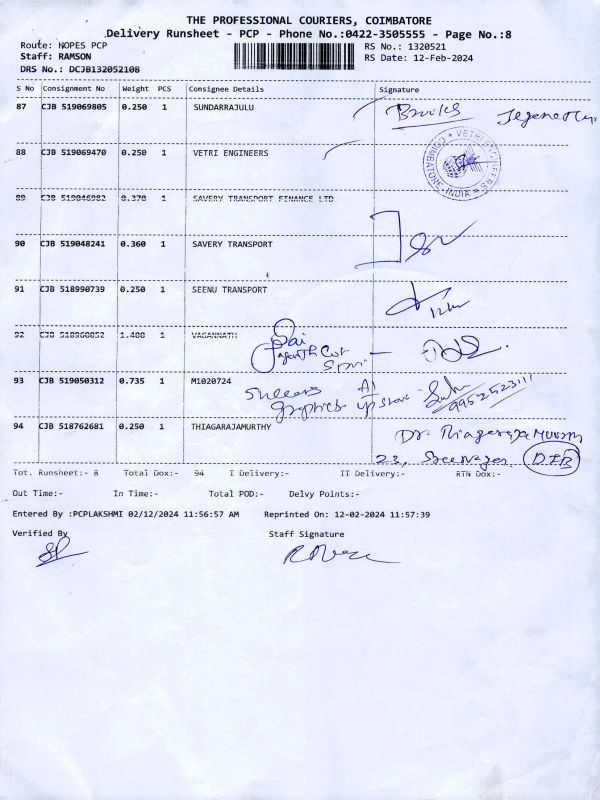 THE PROFESSIONAL COURIERS, COIMBATORE
Delivery Runsheet - PCP - Phone No.:0422-3505555 - Page No.:8
Route: HOPES PCP
RS No.: 1320521
Staff: RAMSON
RS Date: 12-Feb-2024
DRS No.: DCJB132052108
S No Consignment No Weight PCS Consignee Details Signature
87 CJB 519069805 0.250 1 SUNDARRAJULU
88 CJB 519069470 0.250 1 VETRI ENGINEERS
COIMBATORE INDIA
89 CJB 519046982 0.370 1 SAVERY TRANSPORT FINANCE LTD
90 CJB 519048241 0.360 1 SAVERY TRANSPORT
91 CJB 518990739 0.250 1 SEENU TRANSPORT
92 CJB 518960052 1.400 1 VAGANNATH
Sai
93 CJB 519050312 0.735 1 M1020724
graphics
9952523111
94 CJB 518762681 0.250 1 THIAGARAJAMURTHY
Dr. Thiagaraja Murthy
23, Sree Nagar
Tot. Runsheet:- 8 Total Dox:- 94 I Delivery:- II Delivery:- RTN Dox:-
Out Time:- In Time:- Total POD:- Delvy Points:-
Entered By :PCPLAKSHMI 02/12/2024 11:56:57 AM Reprinted On: 12-02-2024 11:57:39
Verified By Staff Signature